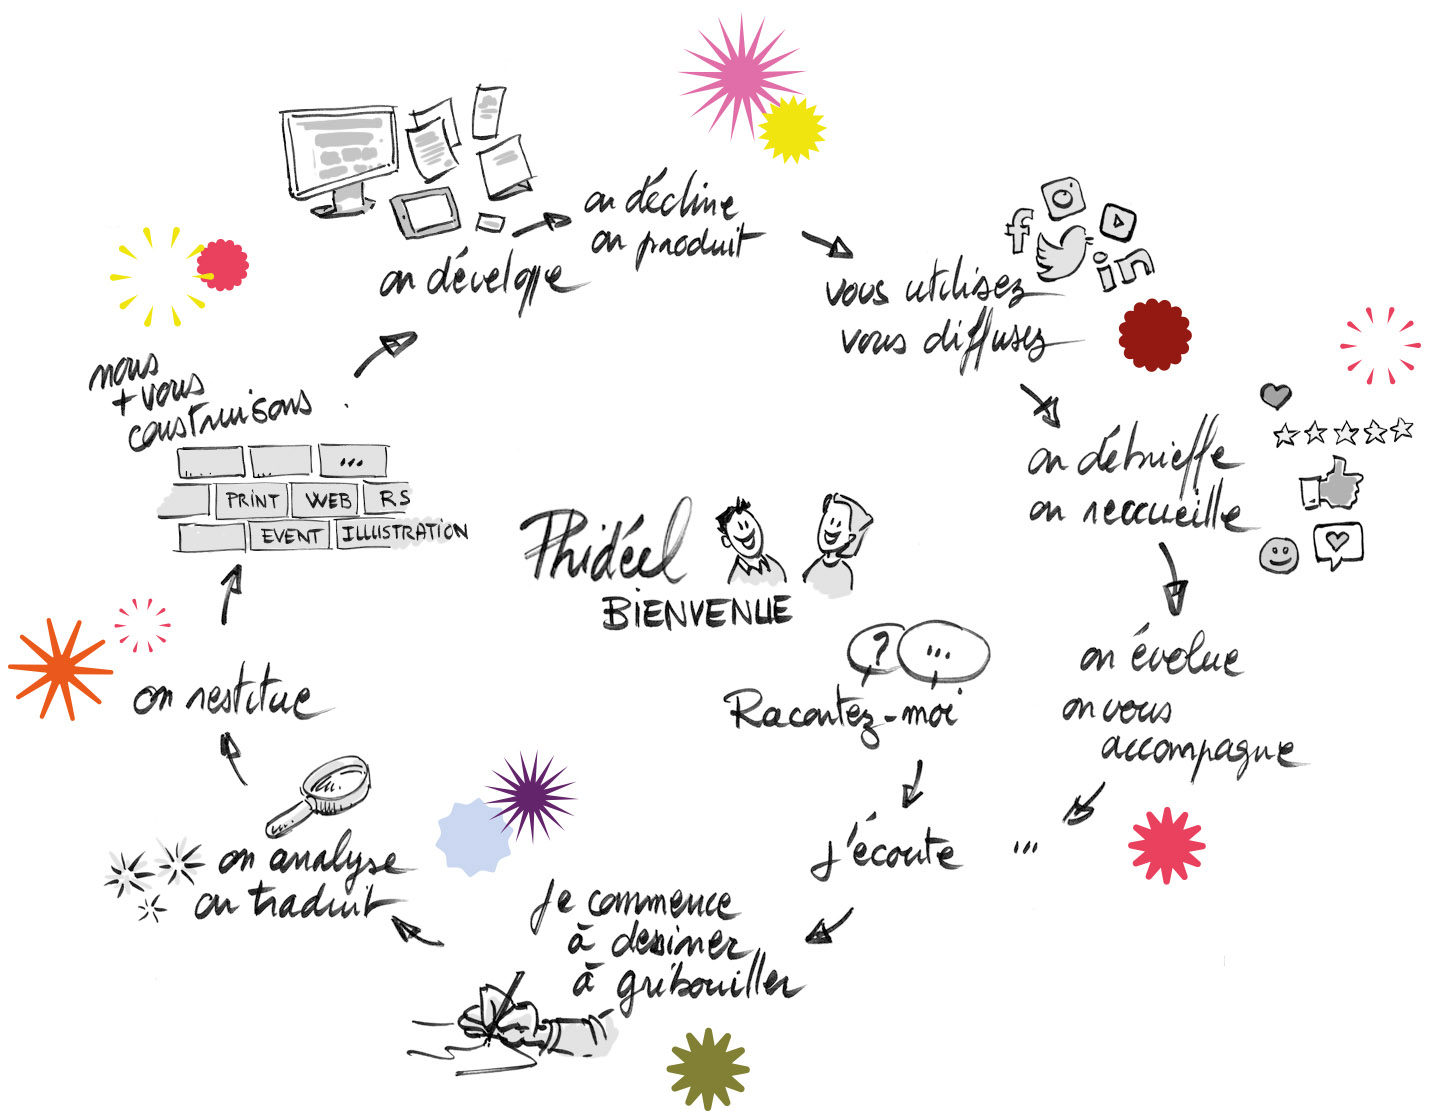 Phidéel
BIENVENUE
?
...
Racontez-moi
j'écoute
...
Je commence
à dessiner
à gribouiller
on analyse
on traduit
on restitue
nous
+ vous
construisons
...
PRINT WEB RS
EVENT ILLUSTRATION
on développe
on décline
on produit
vous utilisez
vous diffusez
f
in
on débrieffe
on reccueille
on évolue
on vous
accompagne